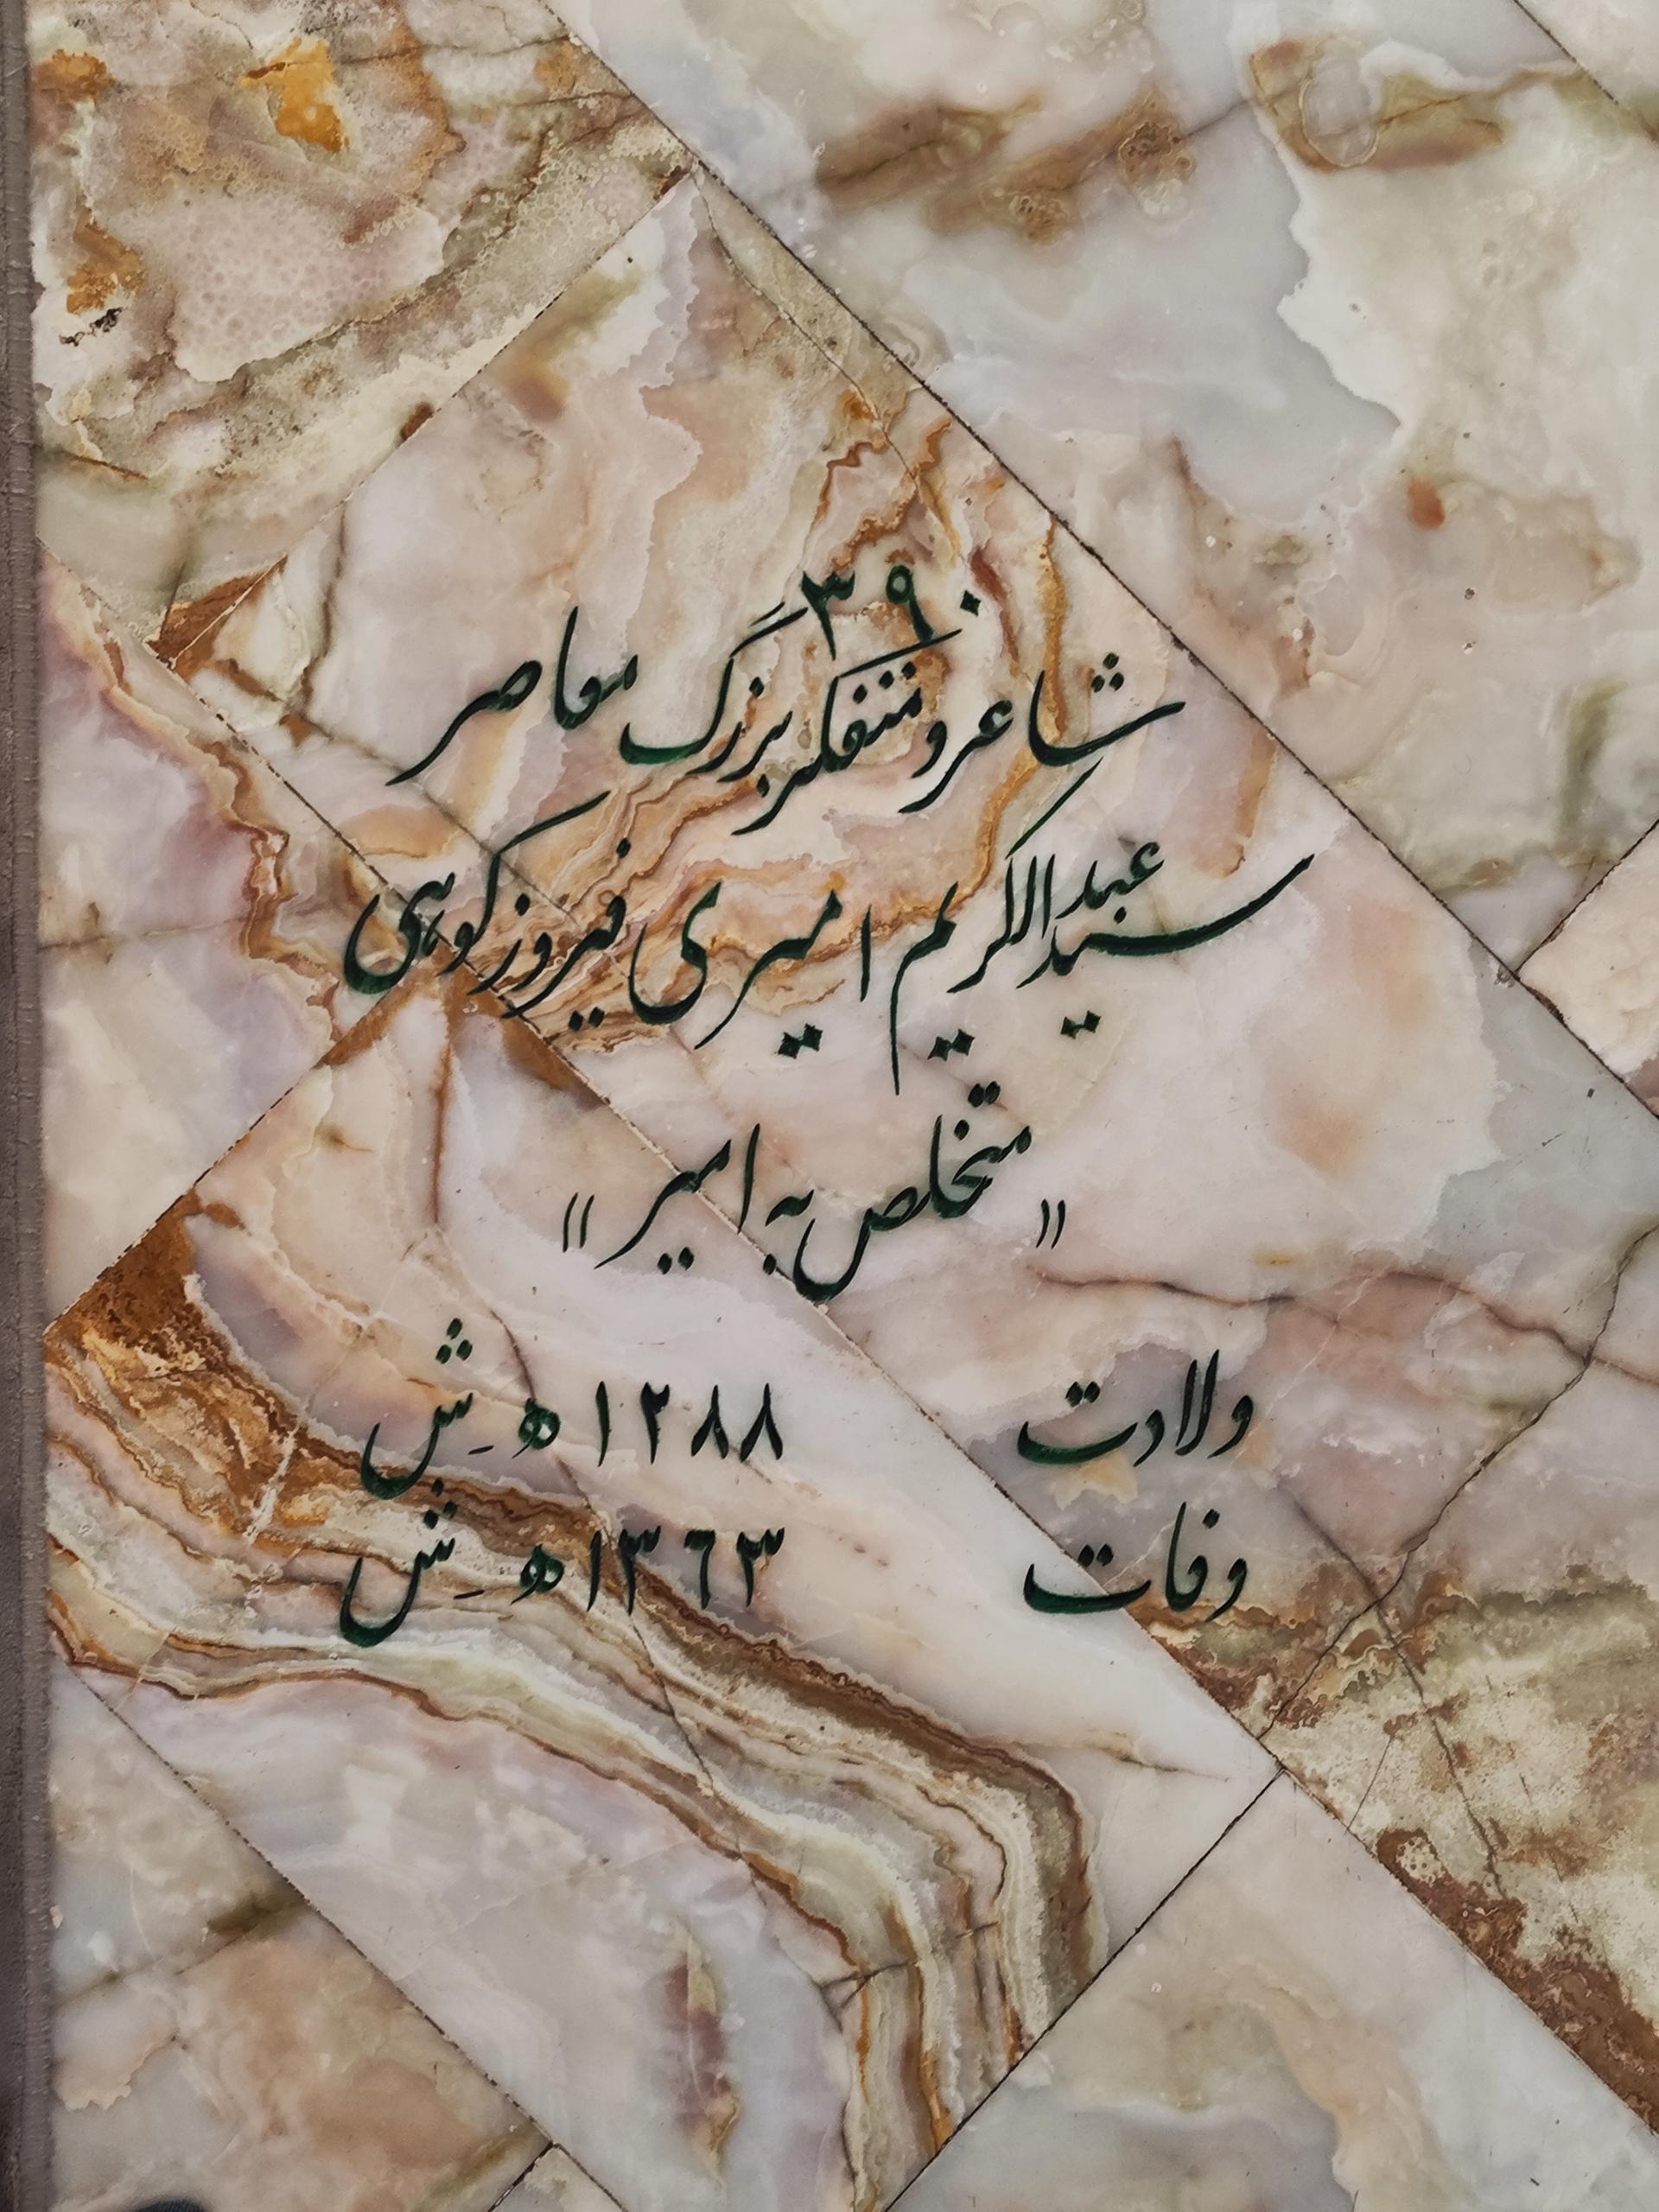 ۳۹۰
شاعر و متفکر بزرگ معاصر
سید عبدالکریم امیری فیروزکوهی
"متخلص به امیر"
ولادت ۱۲۸۸ ه.ش
وفات ۱۳٦۳ ه.ش